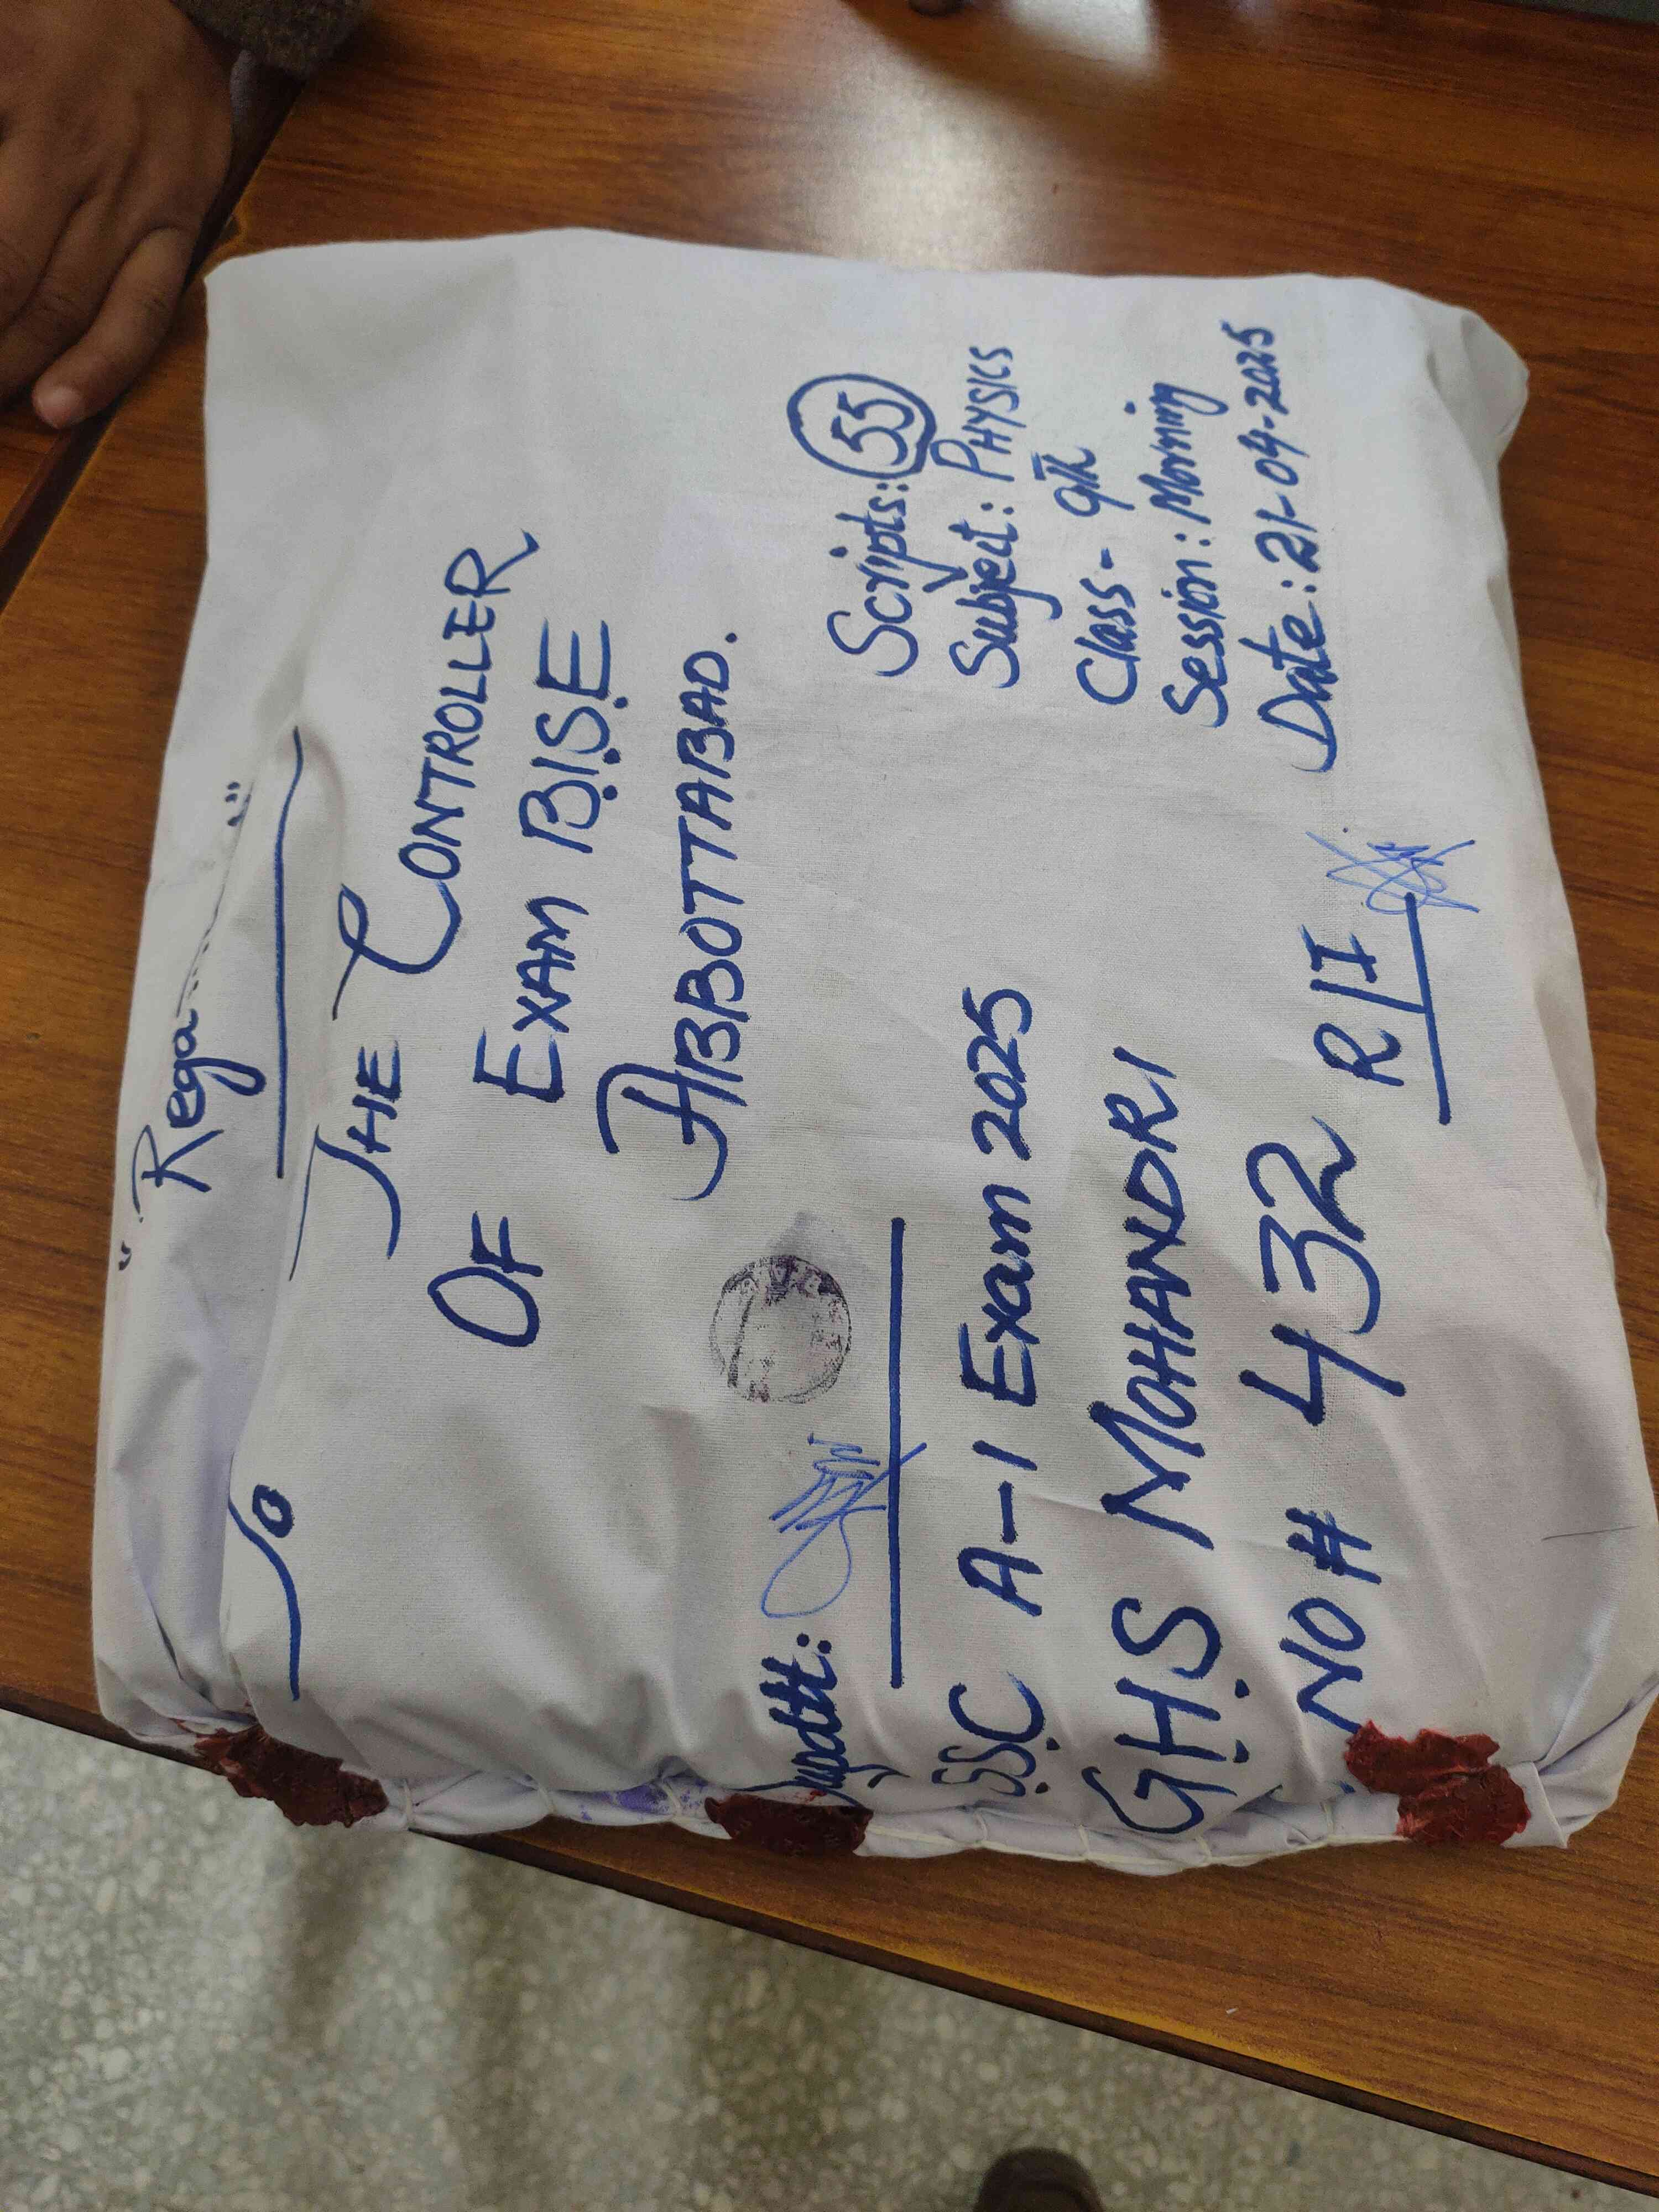 To
THE CONTROLLER
OF EXAM B.I.S.E
ABBOTTABAD.
Scripts: 55
Subject: PHYSICS
Class- 9th
Session: Morning
Date: 21-04-2025
Supdtt:
S.S.C A-1 Exam 2025
G.H.S MOHANDRI
NO# 432 R II